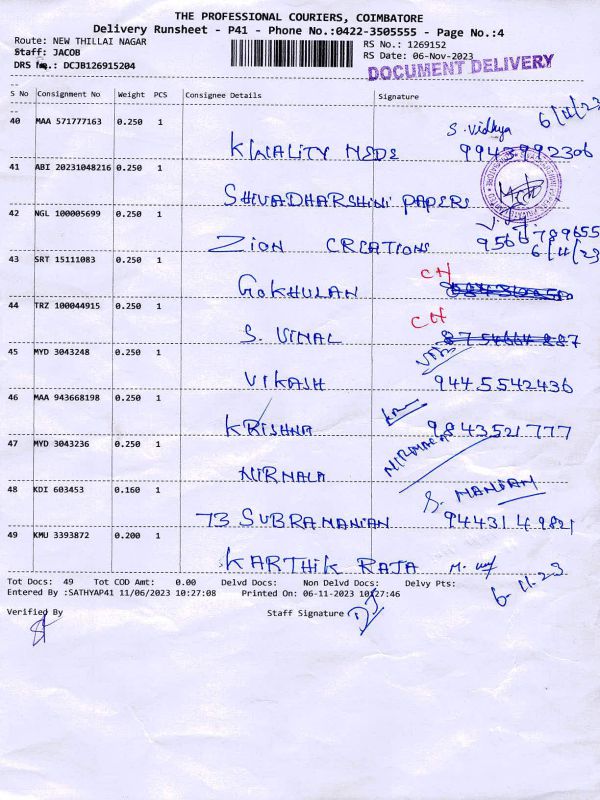 THE PROFESSIONAL COURIERS, COIMBATORE
Delivery Runsheet - P41 - Phone No.:0422-3505555 - Page No.:4
Route: NEW THILLAI NAGAR RS No.: 1269152
Staff: JACOB RS Date: 06-Nov-2023
DRS No.: DCJB126915204 DOCUMENT DELIVERY
S No Consignment No Weight PCS Consignee Details Signature
6/11/23
40 MAA 571777163 0.250 1 S. Vidhya
KWALITY MEDS 9943992306
41 ABI 20231048216 0.250 1
SHIVADHARSHINI PAPERS
42 NGL 100005699 0.250 1
ZION CREATIONS 9566789655
6/11/23
43 SRT 15111083 0.250 1
GOKHULAN CH
44 TRZ 100044915 0.250 1
S. VIMAL CH
45 MYD 3043248 0.250 1
VIKASH 9445542436
46 MAA 943668198 0.250 1
KRISHNA 9843521777
47 MYD 3043236 0.250 1 NIRMALA
NIRMALA
48 KDI 603453 0.160 1 S. MANIAM
73 SUBRAMANIAN
49 KMU 3393872 0.200 1
KARTHIK RAJA
Tot Docs: 49 Tot COD Amt: 0.00 Delvd Docs: Non Delvd Docs: Delvy Pts:
6-11-23
Entered By :SATHYAP41 11/06/2023 10:27:08 Printed On: 06-11-2023 10:27:46
Verified By Staff Signature